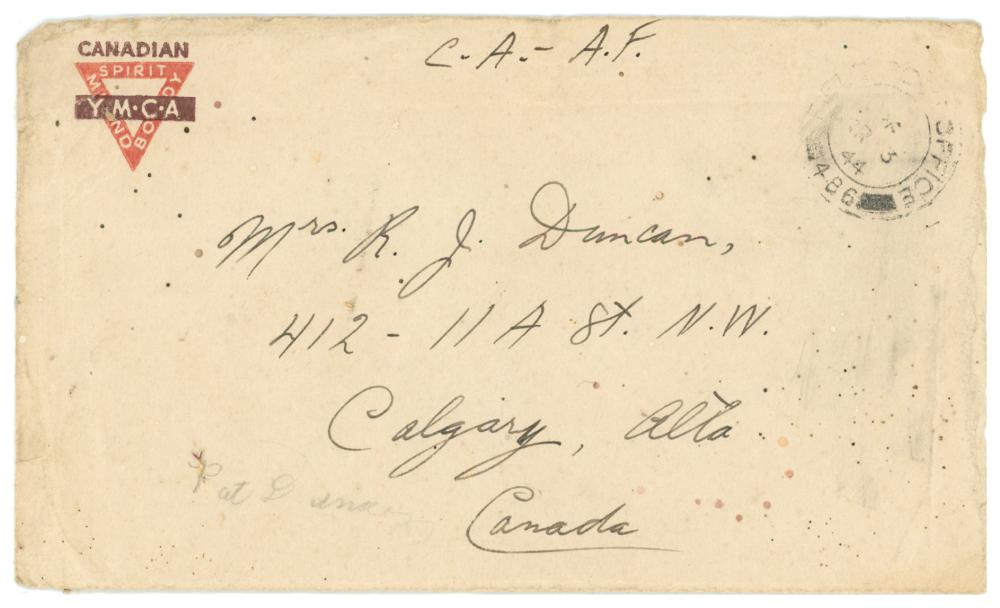 CANADIAN
SPIRIT
MIND
BODY
Y·M·C·A
C.A.-A.F.
OFFICE
3
44
486
Mrs. R. J. Duncan,
412 - 11 A St. N.W.
Calgary, Alta
Canada
Pat